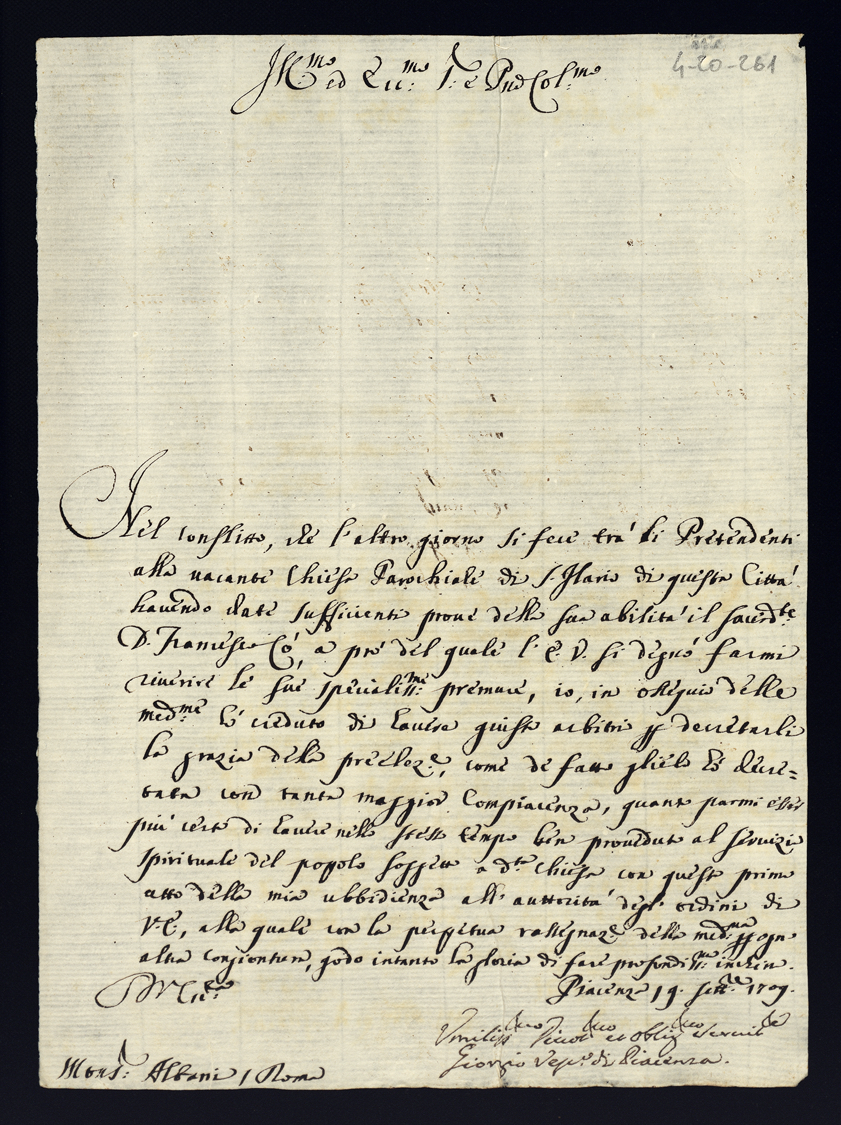 4-20-261
Ill.mo ed Ecc.mo S.r e Pne Col.mo
Nel conflitto, che l'altro giorno si fece trà li Pretendenti
alla uacante Chiesa Parochiale di S. Ilario di questa Città
hauendo date sufficienti proue della sua abilità il Sacerd.te
D. Francesco Cò, a prò del quale l'E. V. si degnò farmi
riuerire le sue specialiss.me premure, io, in ossequio delle
med.me hò creduto di hauere giusto arbitrio p decretarli
la grazia della preelez.e, come de fatto glielo hò decre=
tata con tanta maggior compiacenza, quanto parmi esser
più certo di hauere nello stesso tempo ben proueduto al seruizio
spirituale del popolo soggetto a d.ta Chiesa con questo primo
atto della mia ubbidienza all'auttorità degl'ordini di
V. E., alla quale con la perpetua rassegnaz.e della med.ma p ogn
altra congiontura, godo intanto la gloria di fare profondiss.mo inchin.
D V Ecc.za
Piacenza 19. Sett.re 1709.
Vmiliss.mo Diuot.mo et oblig.mo Seruit.re
Giorgio Vesc.o di Piacenza.
Mons.r Albani / Roma